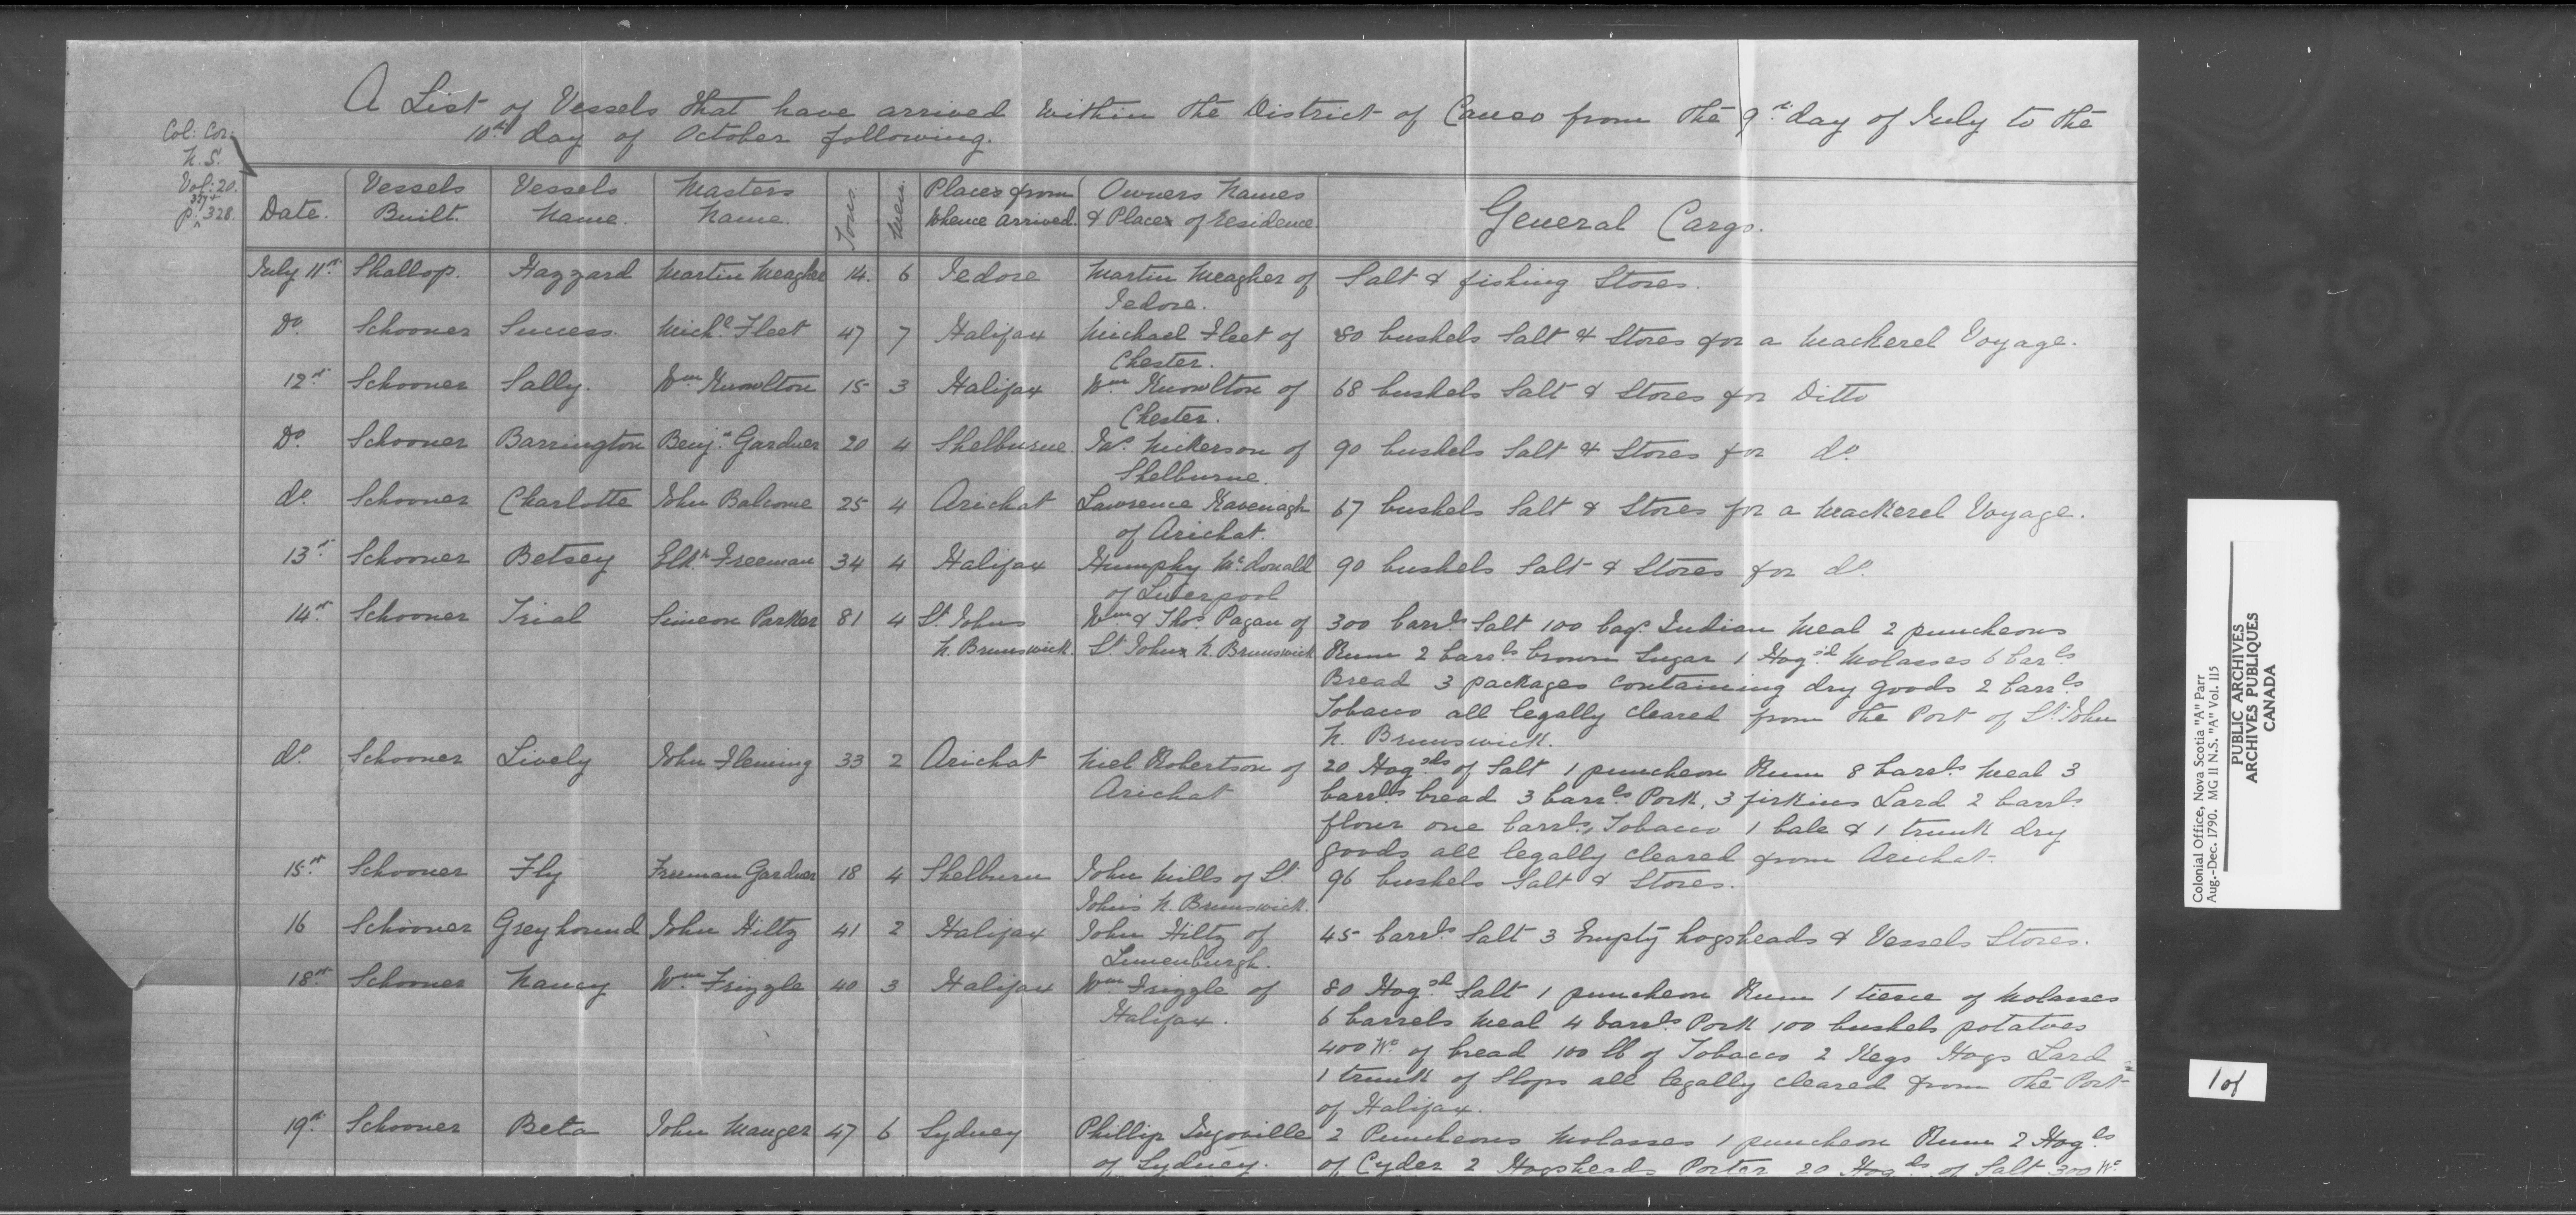 A List of Vessels that have arrived within the District of Canso from the 9th day of July to the
10th day of October following.
Col: Cor:
N.S.
Vol: 20.
327 &
p. 328.
Date. Vessels Built. Vessels Name. Masters Name. Tons. Men. Places from whence arrived. Owners Names & Places of residence. General Cargo.
July 11th Shallop. Hazzard Martin Meagher 14. 6 Jedore Martin Meagher of Salt & fishing Stores.
Jedore.
Do. Schooner Success. Michl. Fleet 47 7 Halifax Michael Fleet of 80 bushels Salt & Stores for a Mackerel Voyage.
Chester.
12th Schooner Sally. Wm Knowlton 15 3 Halifax Wm Knowlton of 68 bushels Salt & Stores for Ditto
Chester.
Do. Schooner Barrington Benjn. Gardner 20 4 Shelburne. Jas. Nickerson of 90 bushels Salt & Stores for do.
Shelburne.
do. Schooner Charlotte John Balcome 25 4 Arichat Lawrence Kavenagh 67 bushels Salt & Stores for a Mackerel Voyage.
of Arichat.
13th Schooner Betsey Elkh. Freeman 34 4 Halifax Humphy McDonald 90 bushels Salt & Stores for do.
of Liverpool
14th Schooner Trial Simeon Parker 81 4 St. Johns Wm & Thos. Pagan of 300 barrls. Salt 100 bags. Indian Meal 2 puncheons
N. Brunswick. St. Johns N. Brunswick Rum 2 barrls. brown Sugar 1 Hogshd. Molasses 6 barls
Bread 3 packages containing dry goods 2 barrls.
Tobacco all legally cleared from the Port of St. John
N. Brunswick.
do. Schooner Lively John Fleming 33 2 Arichat Niel Robertson of 20 Hogshds of Salt 1 puncheon Rum 8 barrls. Meal 3
Arichat barrls. bread 3 barrls. Pork, 3 firkins Lard 2 barrls.
flour one barrls. Tobacco 1 bale & 1 trunk dry
goods all legally cleared from Arichat.
15th Schooner Fly Freeman Gardner 18 4 Shelburn John Mills of St. 96 bushels Salt & Stores.
Johns N. Brunswick.
16 Schooner Greyhound John Hiltz 41 2 Halifax John Hiltz of 45 barrls. Salt 3 Empty hogsheads & Vessels Stores.
Lunenburgh.
18th Schooner Nancy Wm Frizzle 40 3 Halifax Wm Frizzle of 80 Hogshd. Salt 1 puncheon Rum 1 tierce of Molasses
Halifax. 6 barrels Meal 4 barrls. Pork 100 bushels potatoes
400 Wt. of bread 100 lb of Tobacco 2 Kegs Hogs Lard
1 trunk of Slops all legally cleared from the Port
of Halifax.
19th Schooner Beta John Mauger 47 6 Sydney Phillip Ingoville 2 Puncheons Molasses 1 puncheon Rum 2 Hogds
of Sydney. of Cyder 2 Hogsheads Porter 20 Hogds. of Salt 300 Wt.
Colonial Office, Nova Scotia "A" Parr
Aug.-Dec. 1790. MG II N.S. "A" Vol. 115
PUBLIC ARCHIVES
ARCHIVES PUBLIQUES
CANADA
1 of